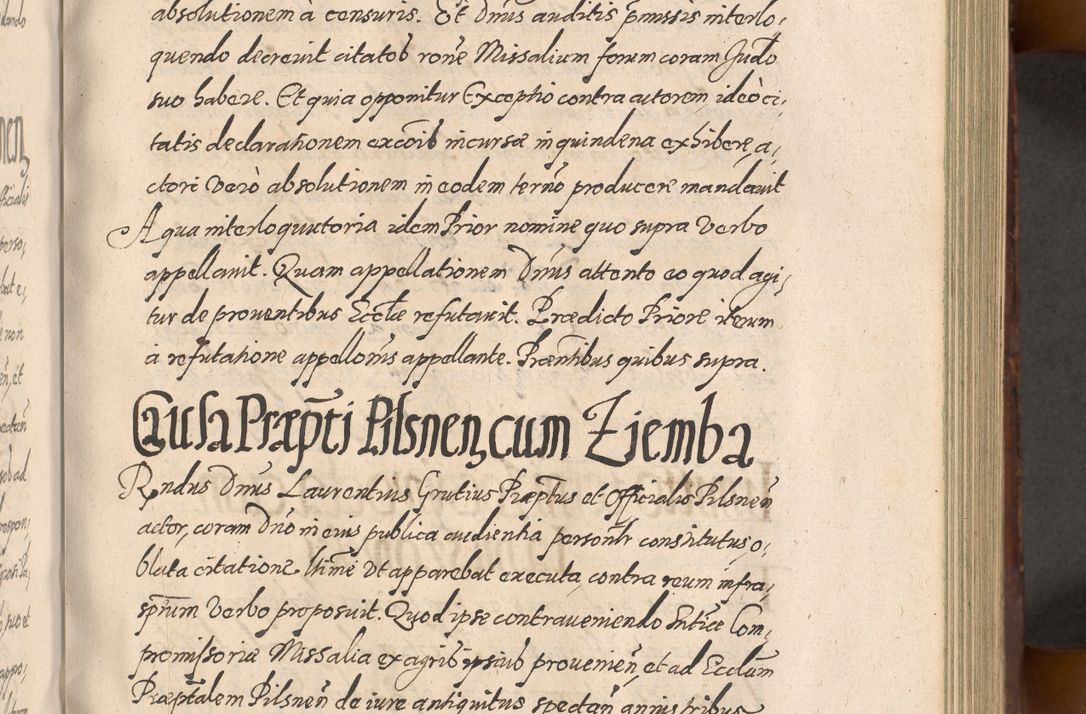 absolutionem à censuris. Et Dn̄us auditis p̄missis interlo,
quendo decrevit citatos rōne Missalium forum coram Jud̄o
suo habere. Et quia opponitur Exceptio contra autorem, ideò ci,
tatis declarationem excōib incursæ in quindena exhibere, a,
ctori verò absolutionem in eodem termō producere mandavit
A qua interloquutoria idem Prior nomine quo supra verbo
appellavit. Quam appellationem Dn̄us attento eo quod agi,
tur de proventibus Eccl̄æ refutavit. Prædicto Priore iterum
à refutatione appellonīs appellante. Præntibus quibus supra.
Causa Præp̄ti Pilsnen, cum Ziemba
Rndus Dn̄us Laurentius Grutius Præptus et Officialis Pilsnen̄
actor, coram Dn̄o in eius publica audientia personlr constitutus o,
blata citatione ltimē ut apparebat executa, contra reum infra,
sptum verbo proposuit. Quod ipse contraveniendo Sntiæ Com,
promissoriæ Missalia ex agrib ipsius provenien̄, et ad Ecclam
Præptalem Pilsnen̄ de iure antiquitus spectan̄ annis tribus